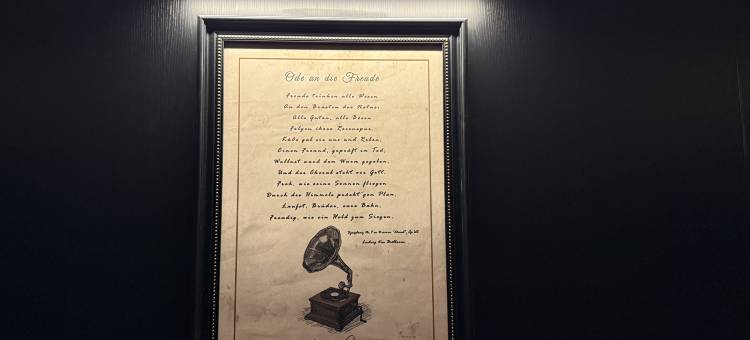 Ode an die Freude
Freude trinken alle Wesen
An den Brüsten der Natur;
Alle Guten, alle Bösen
Folgen ihrer Rosenspur.
Küße gab sie uns und Reben,
Einen Freund, geprüft im Tod;
Wollust ward dem Wurm gegeben,
Und der Cherub steht vor Gott.
Froh, wie seine Sonnen fliegen
Durch des Himmels prächt'gen Plan,
Laufet, Brüder, eure Bahn,
Freudig, wie ein Held zum Siegen.
Symphony No. 9 in D minor "Choral", Op. 125
Ludwig Van Beethoven